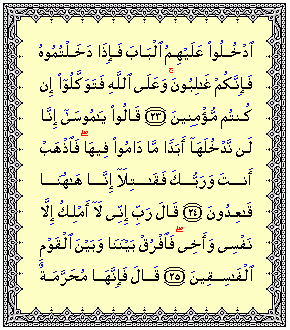 ٱدْخُلُوا۟ عَلَيْهِمُ ٱلْبَابَ فَإِذَا دَخَلْتُمُوهُ
فَإِنَّكُمْ غَـٰلِبُونَ ۚ وَعَلَى ٱللَّهِ فَتَوَكَّلُوٓا۟ إِن
كُنتُم مُّؤْمِنِينَ ﴿٢٣﴾ قَالُوا۟ يَـٰمُوسَىٰٓ إِنَّا
لَن نَّدْخُلَهَآ أَبَدًا مَّا دَامُوا۟ فِيهَا ۖ فَٱذْهَبْ
أَنتَ وَرَبُّكَ فَقَـٰتِلَآ إِنَّا هَـٰهُنَا
قَـٰعِدُونَ ﴿٢٤﴾ قَالَ رَبِّ إِنِّى لَآ أَمْلِكُ إِلَّا
نَفْسِى وَأَخِى ۖ فَٱفْرُقْ بَيْنَنَا وَبَيْنَ ٱلْقَوْمِ
ٱلْفَـٰسِقِينَ ﴿٢٥﴾ قَالَ فَإِنَّهَا مُحَرَّمَةٌ